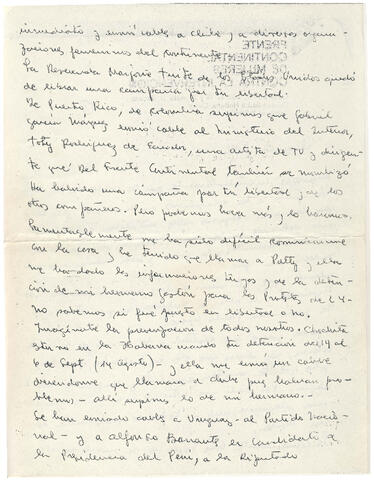 inmediato y envié cables a Chile y a diversas organi-
zaciones femeninas del continente.
La Reverenda Marjorie Tuite de los Estados Unidos quedó
de librar una campaña por su libertad.
De Puerto Rico, de Colombia supimos que Gabriel
García Márquez envió cable al Ministerio del Interior,
Toty Rodríguez de Ecuador, una artista de TV y dirigen-
te que del Frente Continental también se movilizó
Ha habido una campaña por tu libertad y de los
otros compañeros. Pero podemos hacer más y lo haremos.
Lamentablemente me ha sido difícil comunicarme
con la casa y he tenido que llamar a Patty y ella
me ha dado las informaciones tuyas y de la deten-
ción de mi hermano Gastón para las Protestas del 4-
no sabemos si fue puesto en libertad o no.
Imagínate la preocupación de todos nosotros.
estuvo en la Habana cuando tu detención del 14 al
6 de Sept (14 agosto) - y ella me envía un cable
diciéndome que llamara a Chile pues habían pro-
blemas - allí supimos lo de mi hermano.-
Se han enviado cables a Uruguay - al Partido Nacio-
nal - y a Alfonso Barrantes ex Candidato a
la Presidencia del Perú, a la Diputado
FRENTE
CONTINENTAL
DE MUJERES